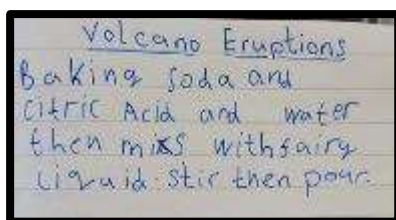 Volcano Eruptions
Baking soda and
citric Acid and water
then mixs with fairy
liquid. Stir then pour.